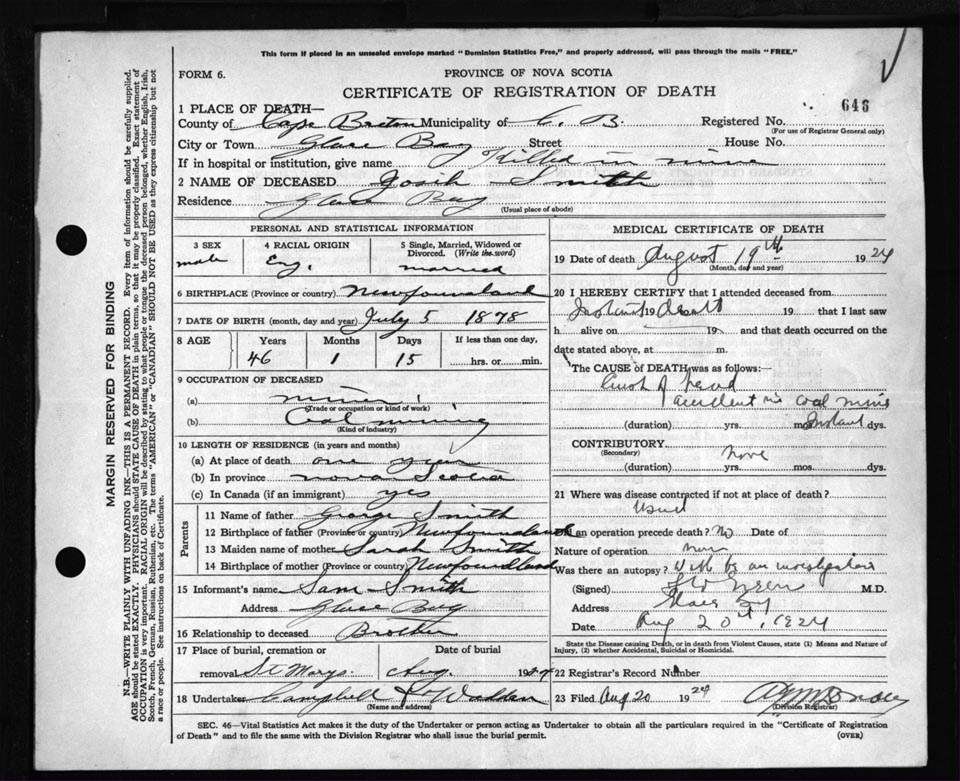 This form if placed in an unsealed envelope marked "Dominion Statistics Free," and properly addressed, will pass through the mails "FREE."
FORM 6.
PROVINCE OF NOVA SCOTIA
CERTIFICATE OF REGISTRATION OF DEATH
646
1 PLACE OF DEATH—
County of Cape Breton Municipality of C. B. Registered No.
(For use of Registrar General only)
City or Town Glace Bay Street House No.
If in hospital or institution, give name Killed in mine
2 NAME OF DECEASED Josih Smith
Residence Glace Bay
(Usual place of abode)
PERSONAL AND STATISTICAL INFORMATION
3 SEX 4 RACIAL ORIGIN 5 Single, Married, Widowed or Divorced. (Write the word)
male Eng. married
6 BIRTHPLACE (Province or country) Newfoundland
7 DATE OF BIRTH (month, day and year) July 5 1878
8 AGE Years Months Days If less than one day,
46 1 15 hrs. or min.
9 OCCUPATION OF DECEASED
(a) miner
(Trade or occupation or kind of work)
(b) Coal mining
(Kind of industry)
10 LENGTH OF RESIDENCE (in years and months)
(a) At place of death one year
(b) In province nova Scotia
(c) In Canada (if an immigrant) yes
Parents
11 Name of father George Smith
12 Birthplace of father (Province or country) Newfoundland
13 Maiden name of mother Sarah Smith
14 Birthplace of mother (Province or country) Newfoundland
15 Informant's name Sam Smith
Address Glace Bay
16 Relationship to deceased Brother
17 Place of burial, cremation or Date of burial
removal St Marys. Aug. 1924
18 Undertaker Campbell & Wadden
(Name and address)
MEDICAL CERTIFICATE OF DEATH
19 Date of death August 19th 1924
(Month, day and year)
20 I HEREBY CERTIFY that I attended deceased from
Instant 19 Death 19 that I last saw
h alive on 19 and that death occurred on
date stated above, at m.
The CAUSE of DEATH was as follows:—
Crush of head
accident in coal mine
(duration) yrs. mos. Instant dys.
CONTRIBUTORY None
(Secondary)
(duration) yrs. mos. dys.
21 Where was disease contracted if not at place of death?
Did an operation precede death? No Date of
Nature of operation
Was there an autopsy? Will be an investigation
(Signed) M.D.
Address Glace Bay
Date Aug 20th, 1924
State the Disease causing Death, or in death from Violent Causes, state (1) Means and Nature of Injury, (2) whether Accidental, Suicidal or Homicidal.
22 Registrar's Record Number
23 Filed Aug 20 1924
(Division Registrar)
SEC. 46—Vital Statistics Act makes it the duty of the Undertaker or person acting as Undertaker to obtain all the particulars required in the "Certificate of Registration
of Death" and to file the same with the Division Registrar who shall issue the burial permit. (OVER)
MARGIN RESERVED FOR BINDING
N.B.—WRITE PLAINLY WITH UNFADING INK—THIS IS A PERMANENT RECORD. Every item of information should be carefully supplied.
AGE should be stated EXACTLY. PHYSICIANS should STATE CAUSE OF DEATH in plain terms, so that it may be properly classified. Exact statement of
OCCUPATION is very important. RACIAL ORIGIN will be described by stating to what people or tongue the deceased person belonged, whether English, Irish,
Scotch, French, German, Russian, Ruthenian, etc. The terms "AMERICAN" or "CANADIAN" SHOULD NOT BE USED as they express citizenship but not
a race or people. See instructions on back of Certificate.